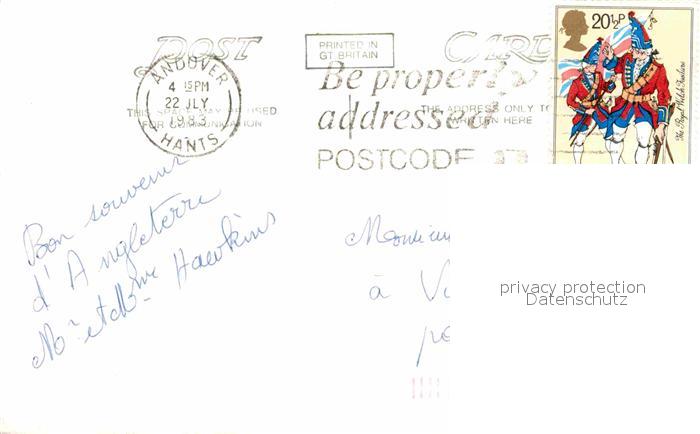 POST CARD
PRINTED IN
GT. BRITAIN
20½P
The Royal Welch Fusiliers
ANDOVER
4 15PM
22 JLY
1983
HANTS
Be properly
addressed
POSTCODE IT
THIS SPACE MAY BE USED
FOR COMMUNICATION
THE ADDRESS ONLY TO
WRITTEN HERE
Bon souvenir
d'Angleterre
Mr et Mme Hawkins
Monsieur
à V
po
privacy protection
Datenschutz